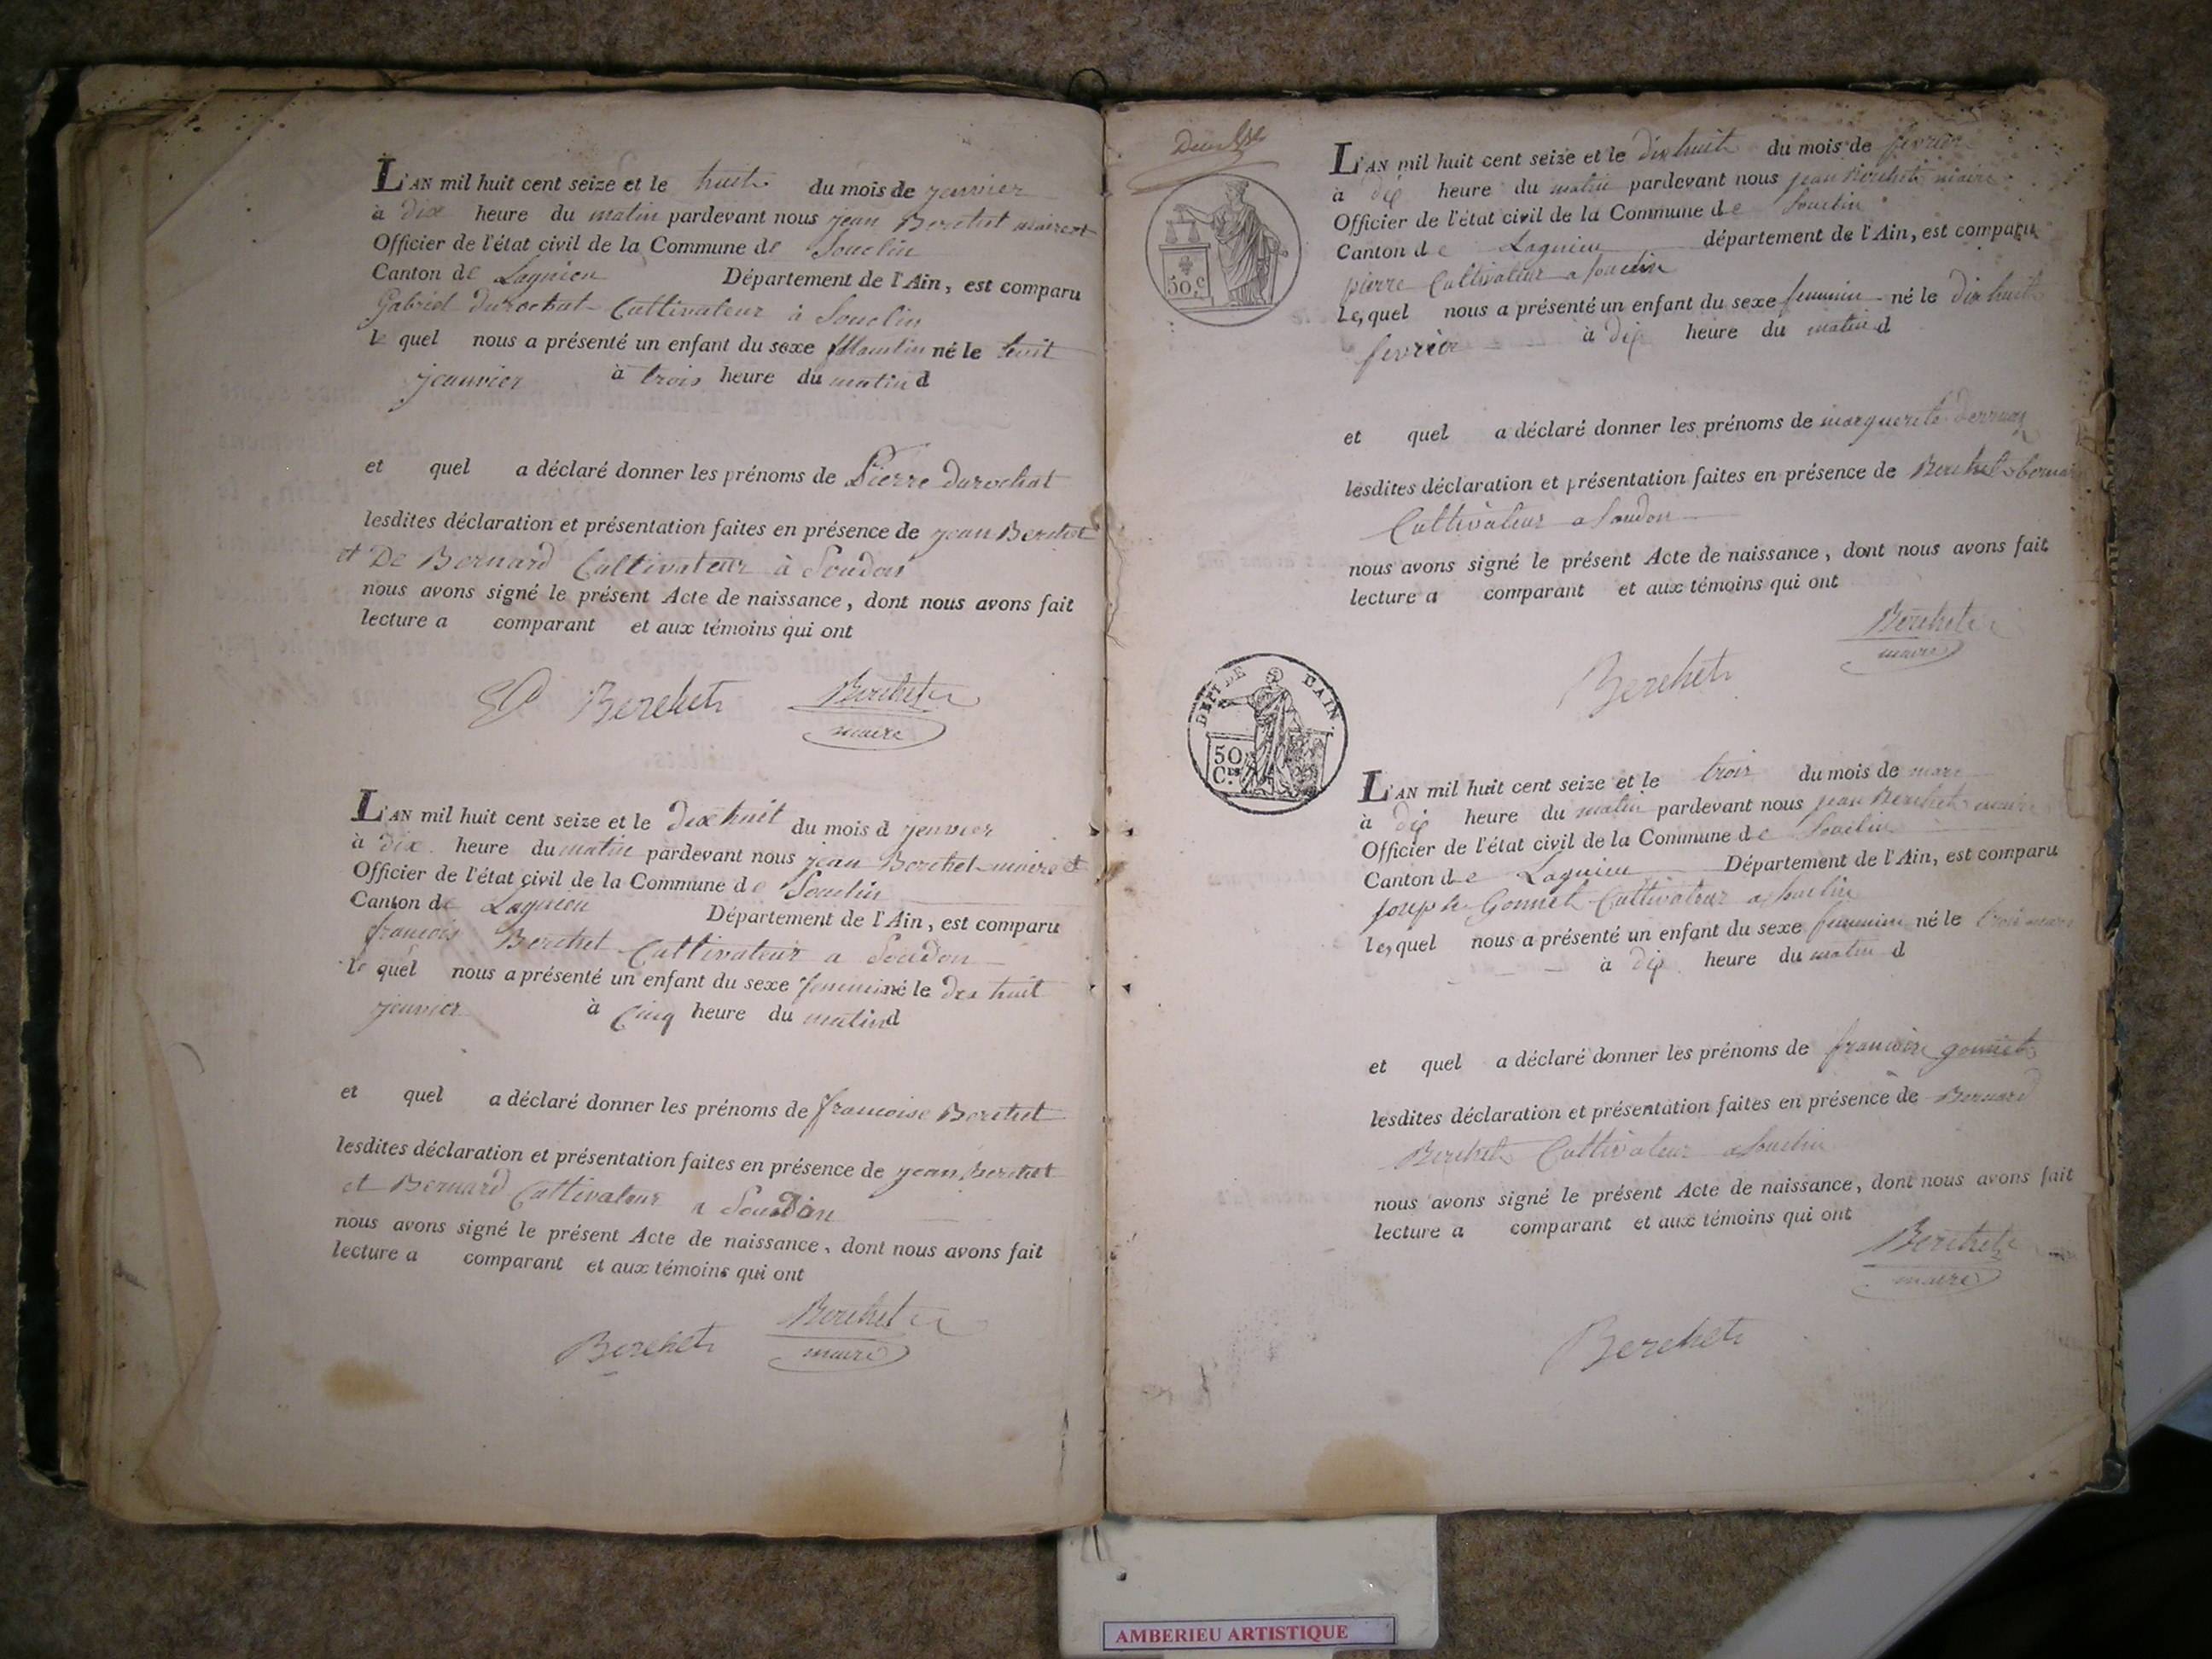 L'AN mil huit cent seize et le huit du mois de jenvier
à dix heure du matin pardevant nous jean Berchet maire et
Officier de l'état civil de la Commune de Souclin
Canton de Lagnieu Département de l'Ain, est comparu
Gabriel durochat Cultivateur à Souclin
le quel nous a présenté un enfant du sexe Masculin né le huit
jenvier à trois heure du matin d
et quel a déclaré donner les prénoms de Pierre durochat
lesdites déclaration et présentation faites en présence de jean Berchet
et De Bernard Cultivateur à Soudon
nous avons signé le présent Acte de naissance, dont nous avons fait
lecture a comparant et aux témoins qui ont
Berchet Berchet
maire
L'AN mil huit cent seize et le dix huit du mois d jenvier
à dix heure du matin pardevant nous jean Berchet maire et
Officier de l'état civil de la Commune de Souclin
Canton de Lagnieu Département de l'Ain, est comparu
francois Berchet Cultivateur a Soudon
le quel nous a présenté un enfant du sexe feminin né le dix huit
jenvier à Cinq heure du matin d
et quel a déclaré donner les prénoms de francoise Berchet
lesdites déclaration et présentation faites en présence de jean Berchet
et Bernard Cultivateur a Soudon
nous avons signé le présent Acte de naissance, dont nous avons fait
lecture a comparant et aux témoins qui ont
Berchet Berchet
maire
50.c
L'AN mil huit cent seize et le dix huit du mois de fevrier
à dix heure du matin pardevant nous jean Berchet maire
Officier de l'état civil de la Commune de Souclin
Canton de Lagnieu département de l'Ain, est comparu
pierre Cultivateur a Souclin
Le, quel nous a présenté un enfant du sexe feminin né le dix huit
fevrier à dix heure du matin d
et quel a déclaré donner les prénoms de marguerite
lesdites déclaration et présentation faites en présence de Berchet
Cultivateur a Soudon
nous avons signé le présent Acte de naissance, dont nous avons fait
lecture a comparant et aux témoins qui ont
Berchet
maire
Berchet
DEPT DE L'AIN.
50
Ces
L'AN mil huit cent seize et le trois du mois de mars
à dix heure du matin pardevant nous jean Berchet maire
Officier de l'état civil de la Commune de Souclin
Canton de Lagnieu Département de l'Ain, est comparu
joseph Gonnet Cultivateur a Souclin
le, quel nous a présenté un enfant du sexe feminin né le trois mars
à dix heure du matin d
et quel a déclaré donner les prénoms de francoise gonnet
lesdites déclaration et présentation faites en présence de Bernard
Berchet Cultivateur a Souclin
nous avons signé le présent Acte de naissance, dont nous avons fait
lecture a comparant et aux témoins qui ont
Berchet
maire
Berchet
AMBERIEU ARTISTIQUE